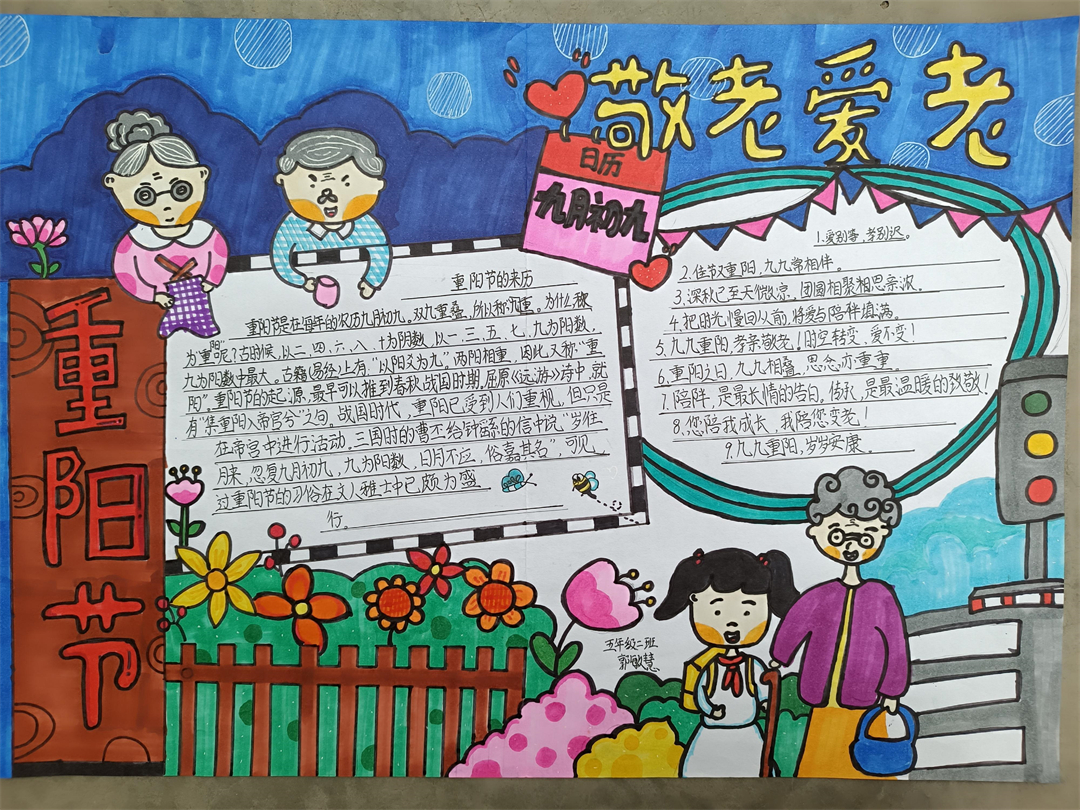 敬老爱老
日历
九月初九
重阳节
重阳节的来历
重阳节是在每年的农历九月初九,双九重叠,所以称九重。为什么称
为重阳呢?古时候,以二、四、六、八、十为阴数,以一、三、五、七、九为阳数,
九为阳数中最大。古籍《易经》上有:“以阳爻为九”。两阳相重,因此又称:“重
阳”。重阳节的起源,最早可以推到春秋战国时期,屈原《远游》诗中,就
有“集重阳入帝宫兮”之句。战国时代,重阳已受到人们重视,但只是
在帝宫中进行活动。三国时的曹丕给钟繇的信中说“岁往
月来,忽复九月初九,九为阳数,日月不应,俗嘉其名”可见
过重阳节的习俗在文人雅士中已颇为盛
行。
1.爱别吝,孝别迟。
2.佳节又重阳,九九常相伴。
3.深秋已至天微凉,团圆相聚相思亲浓。
4.把时光,慢回从前,将爱与陪伴填满。
5.九九重阳,孝亲敬老!时空转变,爱不变!
6.重阳之日,九九相叠,思念亦重重
7.陪伴,是最长情的告白,传承,是最温暖的致敬!
8.您陪我成长,我陪您变老!
9.九九重阳,岁岁安康
五年级二班
郭敏慧